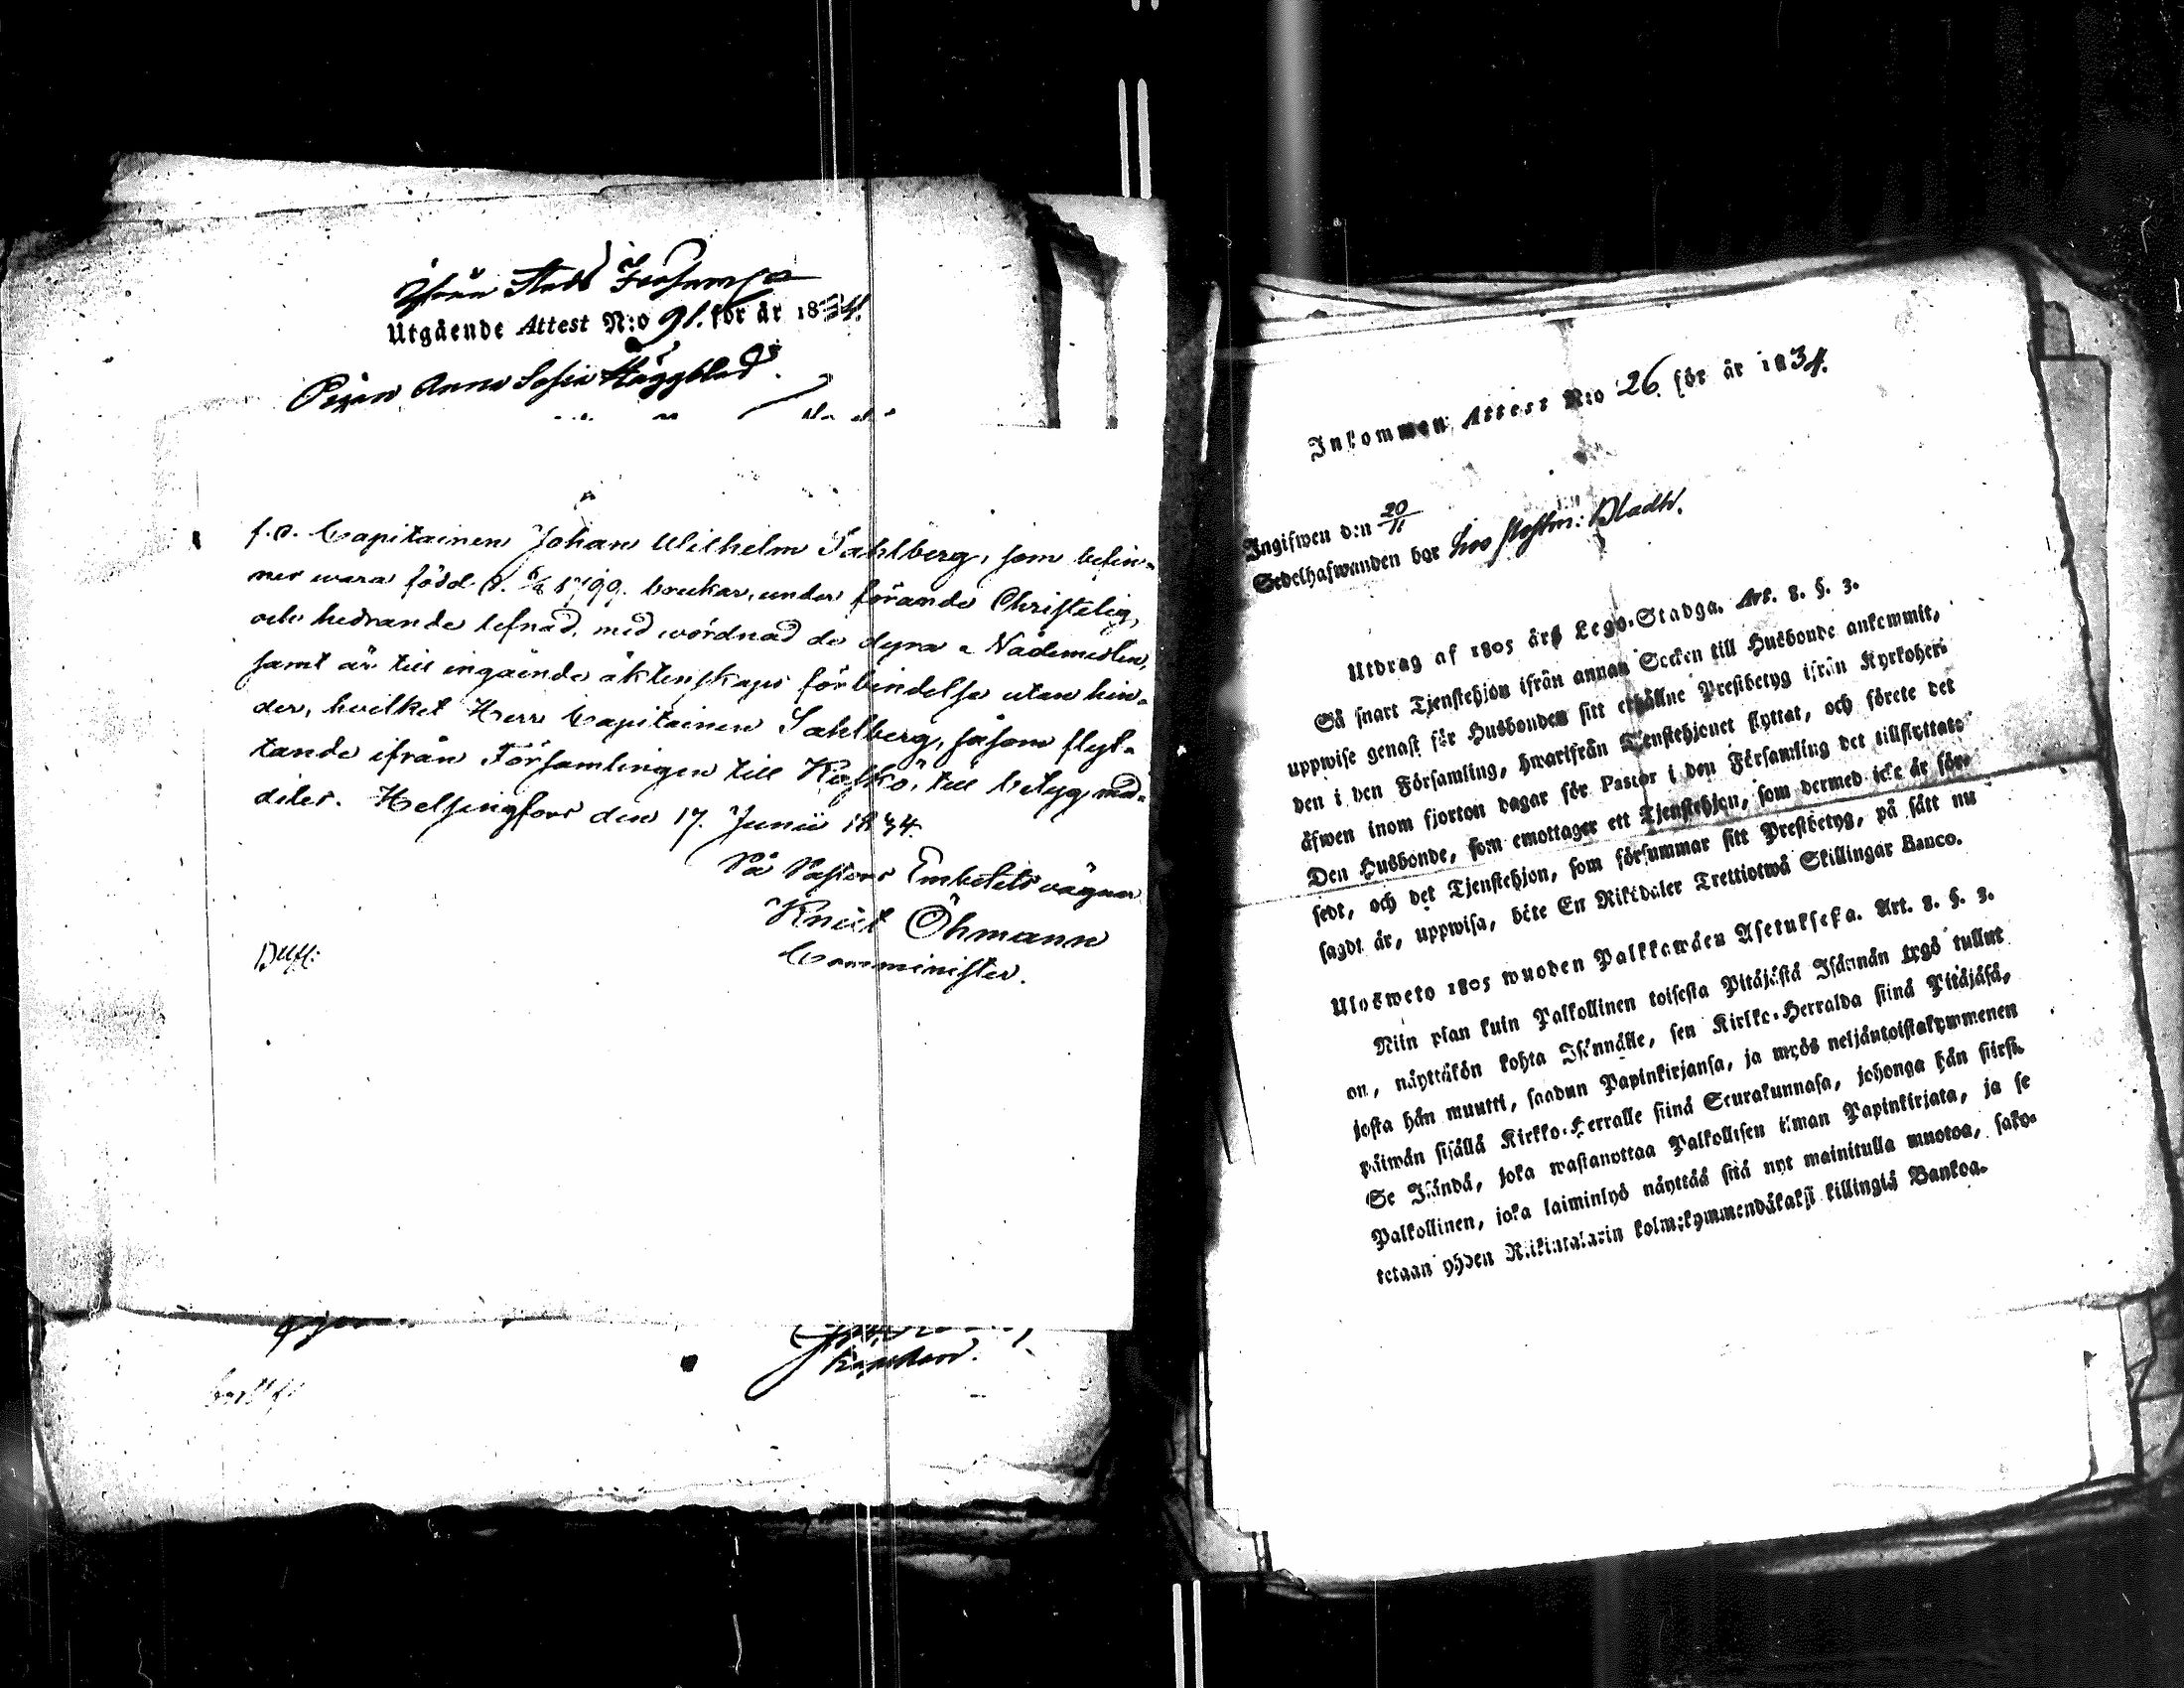 Utgående Attest N:o 91. för år 1834.
Pigan Anna Sofia Häggblad
f.d. Capitainen Johan Wilhelm Sahlberg, som befin-
nes wara född d. 1799. brukar, under förande Christelig,
och hedrande lefnad, med wördnad de dyra Nådemedlen,
samt är till ingående äktenskaps förbindelse utan hin-
der, hvilket Herr Capitainen Sahlberg, såsom flyt-
tande ifrån Församlingen till Kiskö, till betyg med-
delas. Helsingfors den 17. Junii 1834.
På Pastors Embetets vägnar
Knut Öhmann
Comminister.
Inkommen Attest N:o 26 för år 1834.
Ingifwen den 20/11
Sedelhafwanden bor hos Bladh.
Utdrag af 1805 års Lego-Stadga. Art. 8. §. 3.
Så snart Tjenstehjon ifrån annan Socken till Husbonde ankommit,
uppwise genast för Husbonden sitt erhållne Prestbetyg ifrån Kyrkoher-
den i den Församling, hwarifrån Tjenstehjonet flyttat, och förete det
äfwen inom fjorton dagar för Pastor i den Församling det tillflyttat.
Den Husbonde, som emottager ett Tjenstehjon, som dermed icke är för-
sedt, och det Tjenstehjon, som försummar sitt Prestbetyg, på sätt nu
sagdt är, uppwisa, böte En Riksdaler Trettiotwå Skillingar Banco.
Ulosweto 1805 wuoden Palkkawäen Asetuksesa. Art. 8. §. 3.
Niin pian kuin Palkollinen toisesta Pitäjästä Isännän tygö tullut
on, näyttäkön kohta Isännälle, sen Kirkko-Herralda siinä Pitäjäsä,
josta hän muutti, saadun Papinkirjansa, ja myös neljäntoistakymmenen
päiwän sisällä Kirkko-Herralle siinä Seurakunnasa, johonga hän siirsi.
Se Isändä, joka wastanottaa Palkollisen ilman Papinkirjata, ja se
Palkollinen, joka laiminlyö näyttää sitä nyt mainitulla muotoa, sako-
tetaan yhden Riikintalarin kolmekymmendäkaksi killingiä Bankoa.